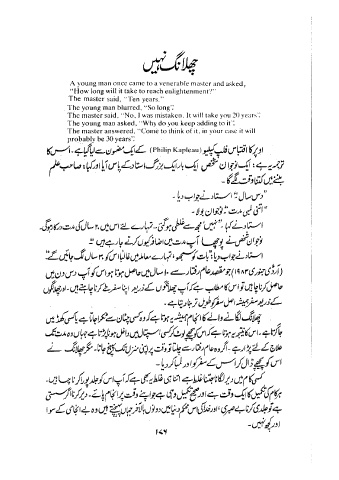 چھلانگ نہیں
A young man once came to a venerable master and asked,
"How long will it take to reach enlightenment?"
The master said, "Ten years."
The young man blurred, "So long".
The master said, "No, I was mistaken. It will take you 20 years".
The young man asked, "Why do you keep adding to it".
The master answered, "Come to think of it, in your case it will
probably be 30 years".
اوپر کا اقتباس فلپ کیپلیو (Philip Kapleau) کے ایک مضمون سے لیا گیا ہے۔ اس کا
ترجمہ یہ ہے: ایک نوجوان شخص ایک بار ایک بزرگ استاد کے پاس آیا اور کہا: صاحب علم
بننے میں کتنا وقت لگے گا۔
"دس سال"۔ استاد نے جواب دیا۔
"اتنی لمبی مدت" نوجوان بولا۔
استاد نے کہا۔ "نہیں مجھ سے غلطی ہو گئی۔ تمہارے لئے اس میں ۲۰ سال کی مدت درکار ہو گی۔
نوجوان شخص نے پوچھا آپ مدت میں اضافہ کیوں کرتے جا رہے ہیں"
استاد نے جواب دیا: بات کو سمجھو، تمہارے معاملہ میں غالباً اس کو ۳۰ سال لگ جائیں گے"
(ارڈی جنوری ۱۹۸۳) جو مقصد عام رفتار سے ۱۰ سال میں حاصل ہوتا ہو اس کو آپ دس دن میں
حاصل کرنا چاہیں تو اس کا مطلب یہ ہے کہ آپ چھلانگوں کے ذریعہ اپنا سفر طے کرنا چاہتے ہیں۔ اور چھلانگوں
کے ذریعہ سفر ہمیشہ اصل سفر کو طویل تر بنا دیتا ہے۔
چھلانگ لگانے والے کا انجام ہمیشہ یہ ہوتا ہے کہ وہ کسی چٹان سے ٹکرا جاتا ہے یا کسی کھڈ میں
جا گرتا ہے۔ اس کا نتیجہ یہ ہوتا ہے کہ اس کو پیچھے لوٹ کر کسی اسپتال میں داخل ہونا پڑتا ہے جہاں وہ مدت تک
علاج کے لئے پڑا رہے۔ اگر وہ عام رفتار سے چلتا تو وقت پر اپنی منزل تک پہنچ جاتا۔ مگر چھلانگ نے
اس کو پیچھے ڈال کر اس کے سفر کو اور لمبا کر دیا۔
کسی کام میں دیر لگانا جتنا غلط ہے اتنا ہی غلط یہ بھی ہے کہ آپ اس کو جلد پورا کرنا چاہیں۔
ہر کام کی تکمیل کا ایک وقت ہے اور صحیح تکمیل وہی ہے جو اپنے وقت پر انجام پائے۔ دیر کرنا اگر سستی
ہے تو جلدی کرنا بے صبری، اور خدا کی اس محکم دنیا میں دونوں بالآخر جہاں پہنچتے ہیں وہ بے انجامی کے سوا
اور کچھ نہیں۔
۱۷۶